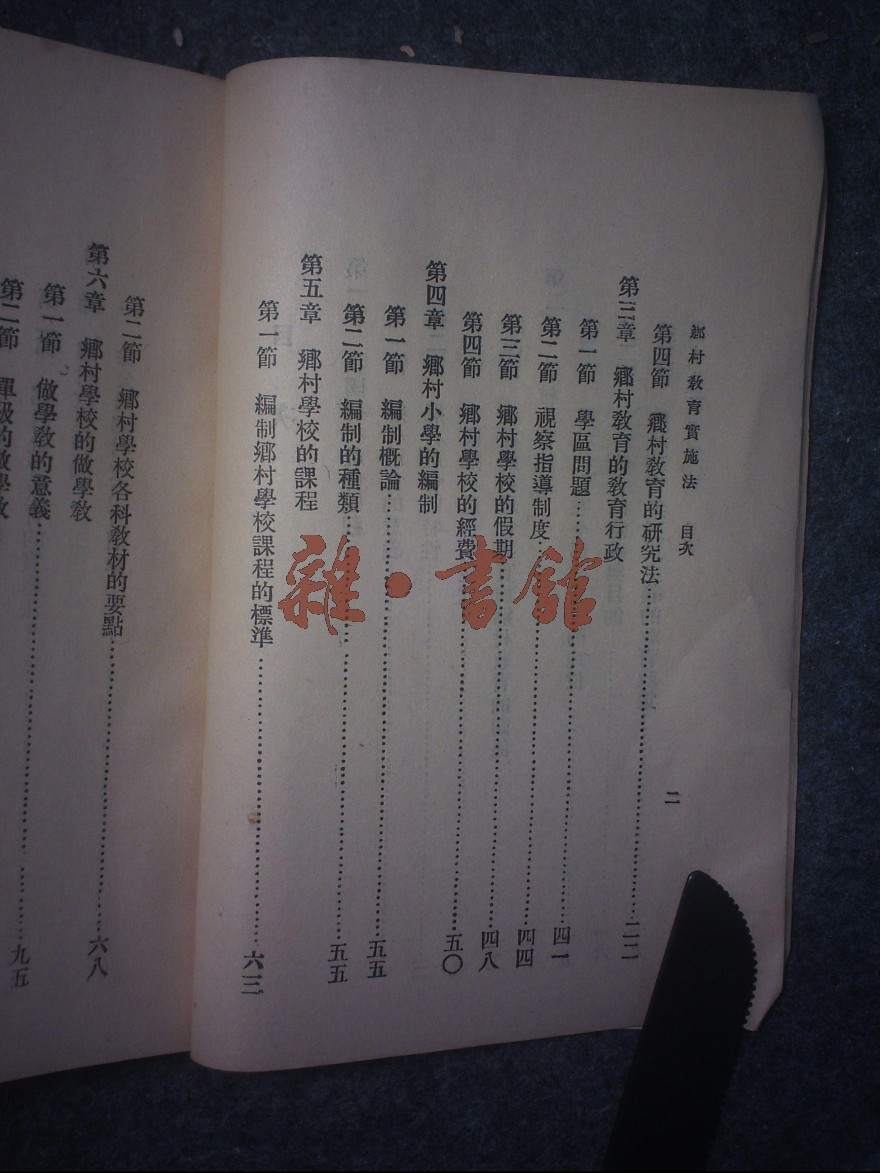 鄉村敎育實施法 目次
二
第四節 鄉村敎育的硏究法……二二
第三章 鄉村敎育的敎育行政
第一節 學區問題……四一
第二節 視察指導制度……四四
第三節 鄉村學校的假期……四八
第四節 鄉村學校的經費……五〇
第四章 鄉村小學的編制
第一節 編制槪論……五五
第二節 編制的種類……五五
第五章 鄉村學校的課程
第一節 編制鄉村學校課程的標準……六三
第二節 鄉村學校各科敎材的要點……六八
第六章 鄉村學校的做學敎
第一節 做學敎的意義……九五
第二節 單級的做學敎
雜·書館